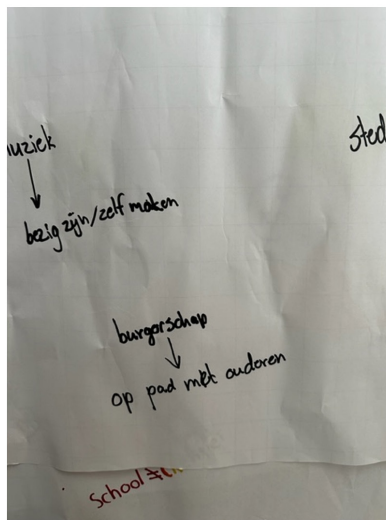 muziek
Sted
bezig zijn/zelf maken
burgerschap
op pad met ouderen
School